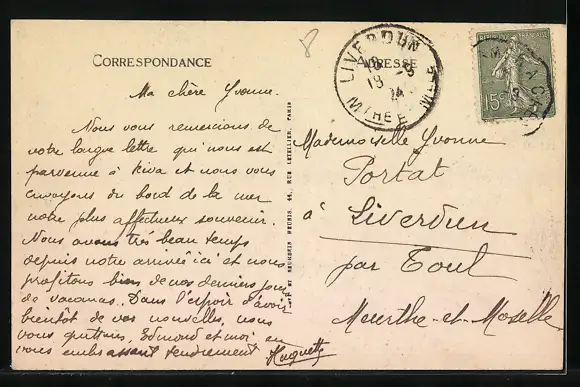 CORRESPONDANCE
Ma chère Yvonne.
Nous vous remercions de
votre longue lettre qui nous est
parvenue à Riva et nous vous
envoyons du bord de la mer
notre plus affectueux souvenir.
Nous avons très beau temps
depuis notre arrivée ici et nous
profitons bien de nos derniers jours
de vacances. Dans l'espoir d'avoir
bientôt de vos nouvelles, nous
vous quittons, Edmond et moi, en
vous embrassant tendrement Huguette
LEVY ET NEURDEIN RÉUNIS, 44, RUE LETELLIER, PARIS
ADRESSE
LIVERDUN
MTHE
REPUBLIQUE FRANÇAISE
15c
Mademoiselle Yvonne
Portat
à Liverdun
par Toul
Meurthe-et-Moselle